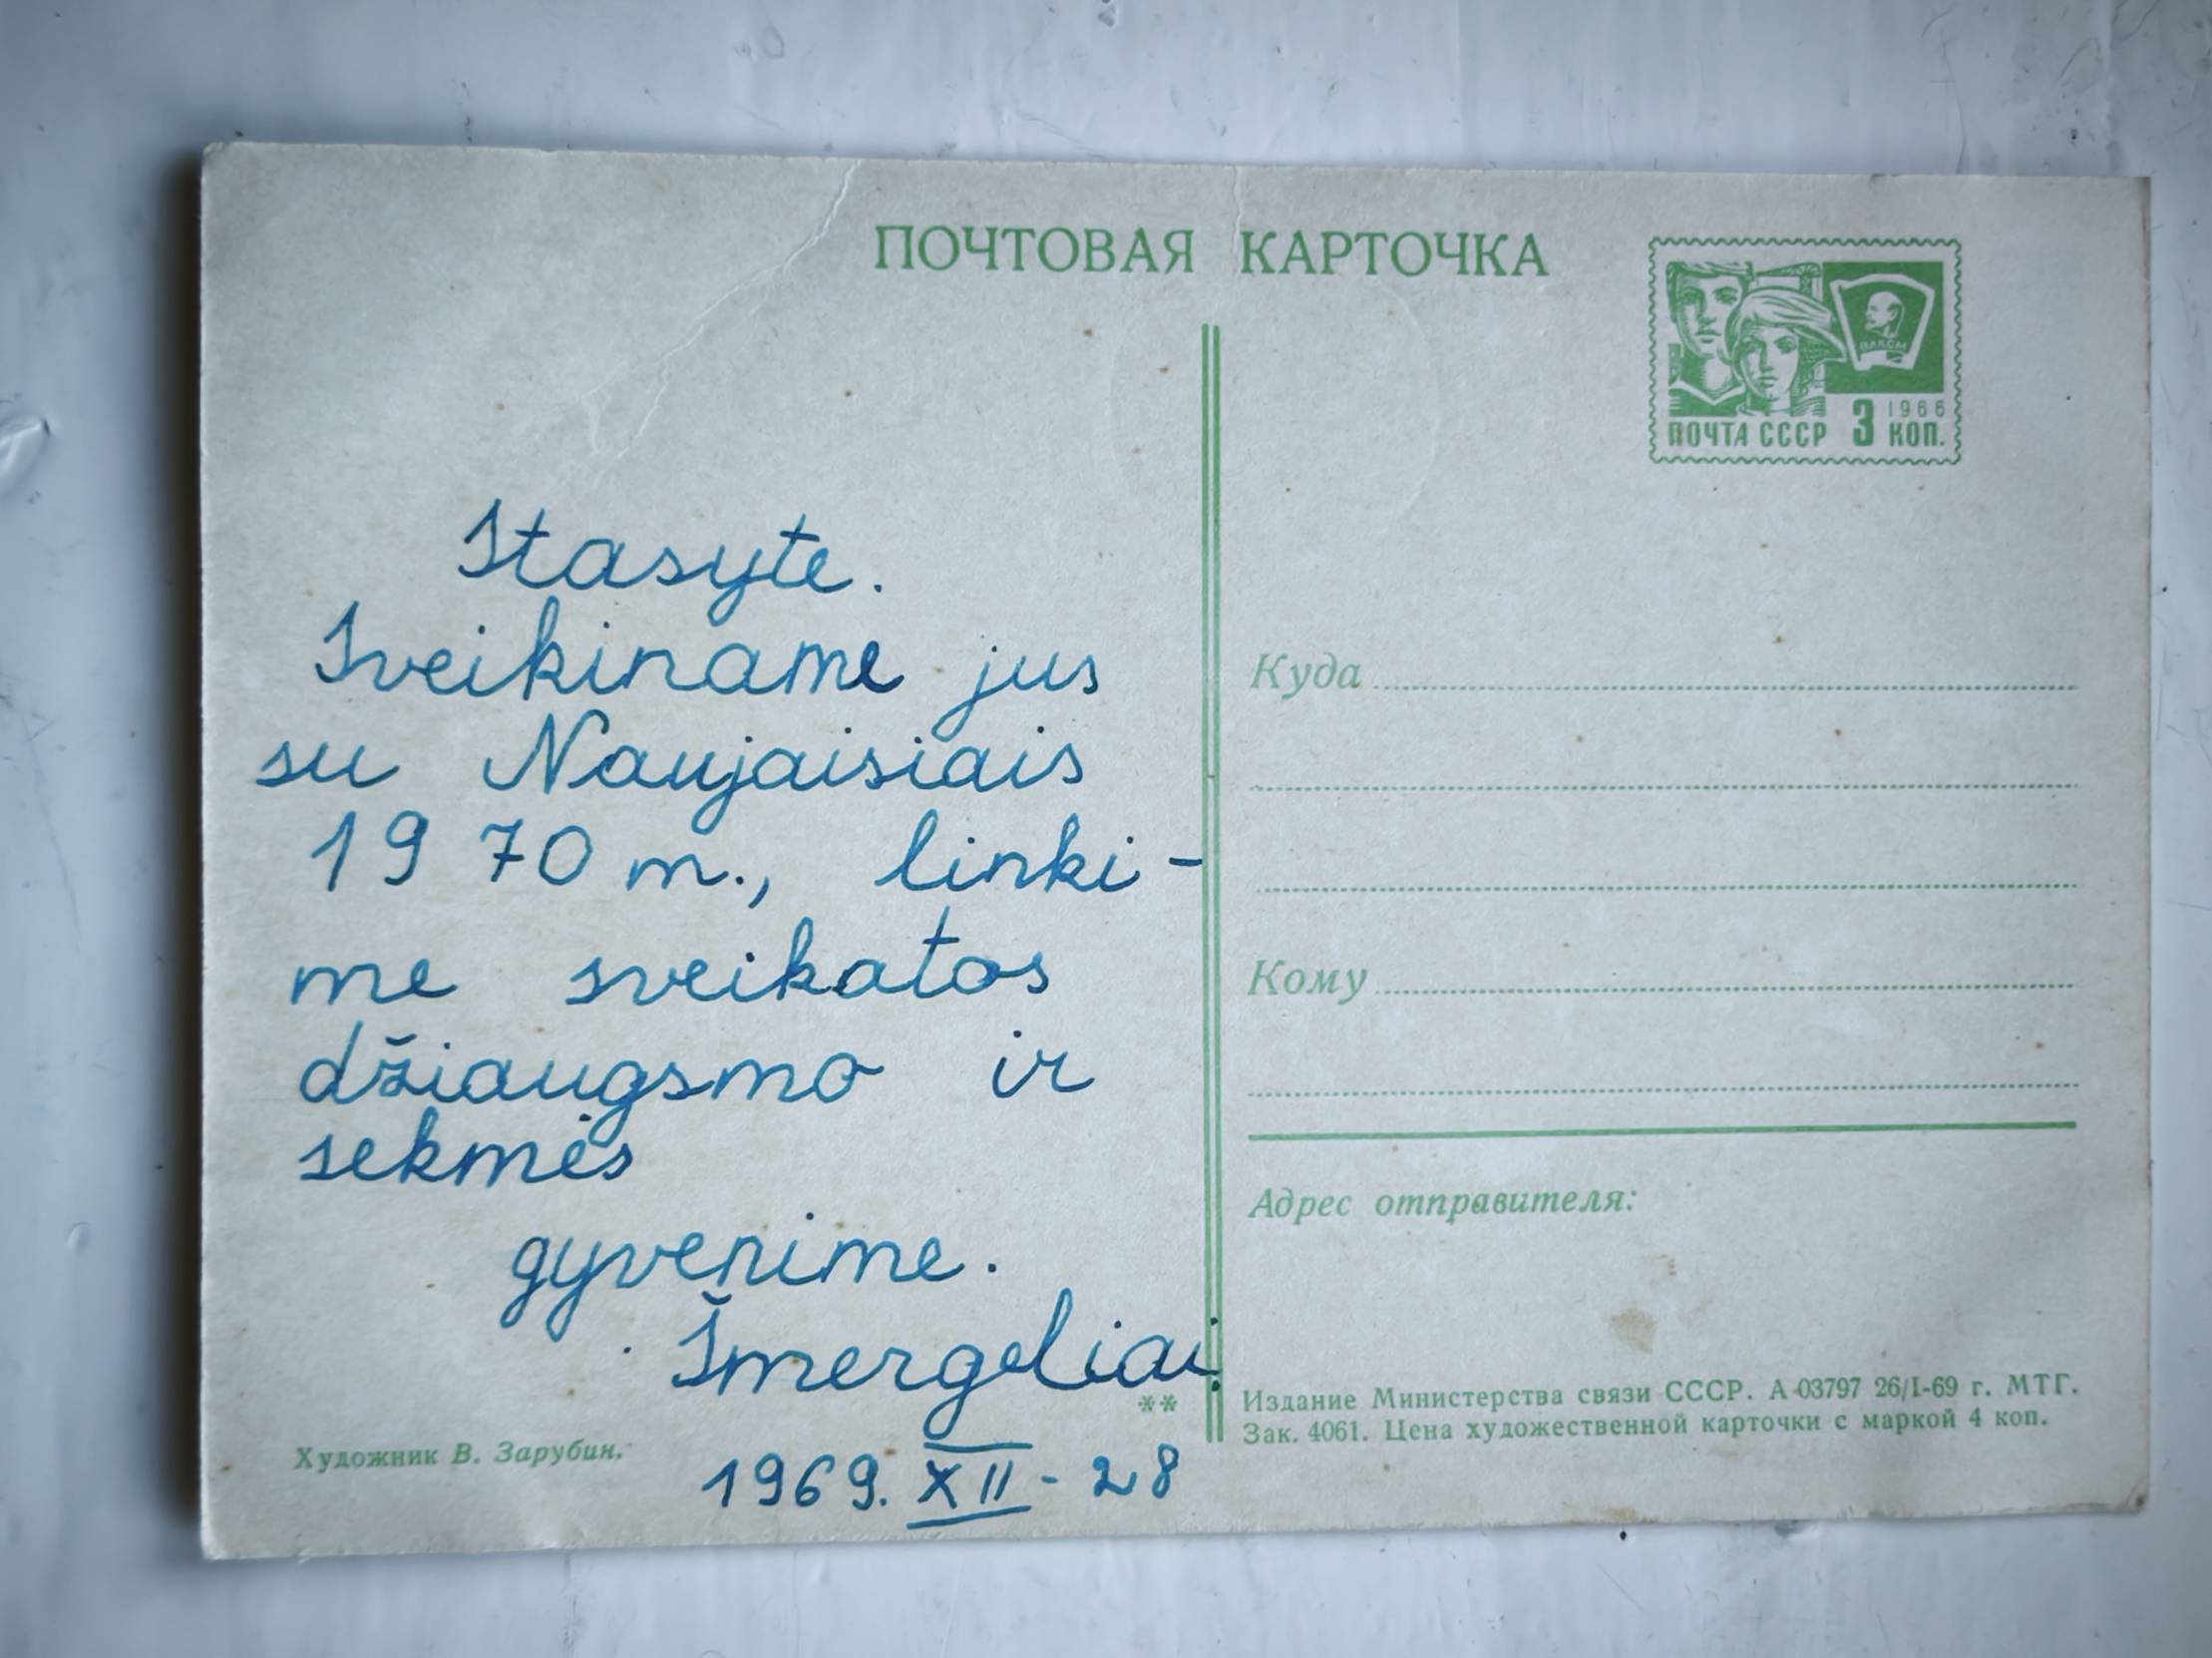 ПОЧТОВАЯ КАРТОЧКА
ВЛКСМ
3 1966
ПОЧТА СССР КОП.
Stasyte.
Sveikiname jus
su Naujaisiais
1970 m., linki-
me sveikatos
džiaugsmo ir
sekmės
gyvenime.
Šmergeliai.
1969. XII - 28
**
Художник В. Зарубин.
Куда
Кому
Адрес отправителя:
Издание Министерства связи СССР. А 03797 26/I-69 г. МТГ.
Зак. 4061. Цена художественной карточки с маркой 4 коп.